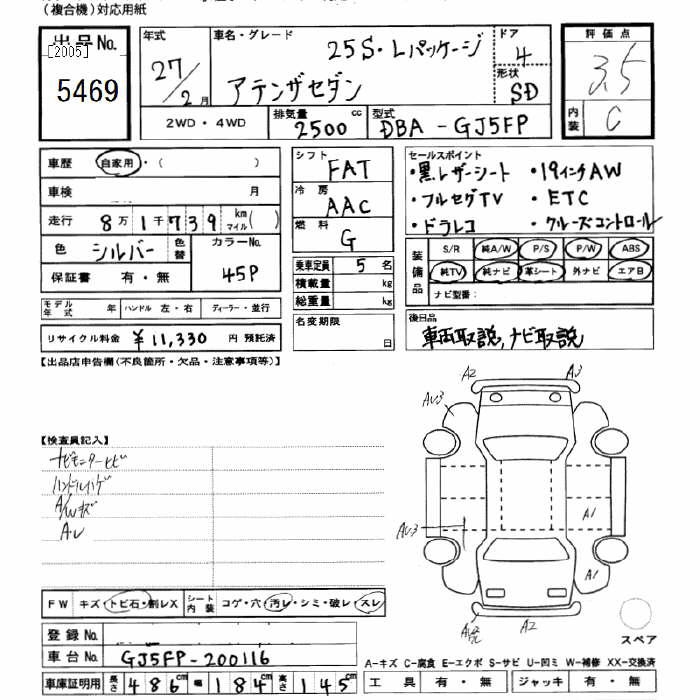 (複合機)対応用紙
出品No. [2005] 5469
年式 27/2月
車名・グレード 25S・Lパッケージ
アテンザセダン
ドア 4
形状 SD
評価点 3.5
内装 C
2WD・4WD
排気量 2500cc
型式 DBA-GJ5FP
車歴 自家用・( )
車検 月
走行 8万1千739 km マイル( )
色 シルバー 色替
カラーNo. 45P
保証書 有・無
モデル年式 年 ハンドル 左・右 ディーラー・並行
リサイクル料金 ¥11,330円 預託済
シフト FAT
冷房 AAC
燃料 G
乗車定員 5名
積載量 kg
総重量 kg
名変期限 日
セールスポイント
・黒レザーシート ・19インチAW
・フルセグTV ・ETC
・ドラレコ ・クルーズコントロール
装備品 S/R 純A/W P/S P/W ABS
純TV 純ナビ 革シート 外ナビ エアB
ナビ型番:
後日品
車両取説,ナビ取説
【出品店申告欄(不良箇所・欠品・注意事項等)】
【検査員記入】
ナビモニターヒビ
ハンドルハゲ
A/Wキズ
A・U
A2 A3
AU3
A1
AU3
A1
A2
スペア
FW キズ・トビ石・割レX シート内装 コゲ・穴・汚レ・シミ・破レ・スレ
登録No.
車台No. GJ5FP-200116
車庫証明用 長さ 486cm 幅 184cm 高さ 145cm
A-キズ C-腐食 E-エクボ S-サビ U-凹ミ W-補修 XX-交換済
工具 有・無 ジャッキ 有・無